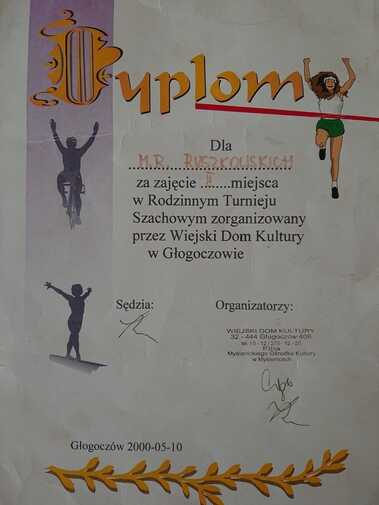 Dyplom
Dla
M.R. RUSZKOWSKICH
za zajęcie ...II...miejsca
w Rodzinnym Turnieju
Szachowym zorganizowany
przez Wiejski Dom Kultury
w Głogoczowie
Sędzia:
Organizatorzy:
WIEJSKI DOM KULTURY
32 - 444 Głogoczów 406
Filia
Myślenickiego Ośrodka Kultury
w Myślenicach
Głogoczów 2000-05-10